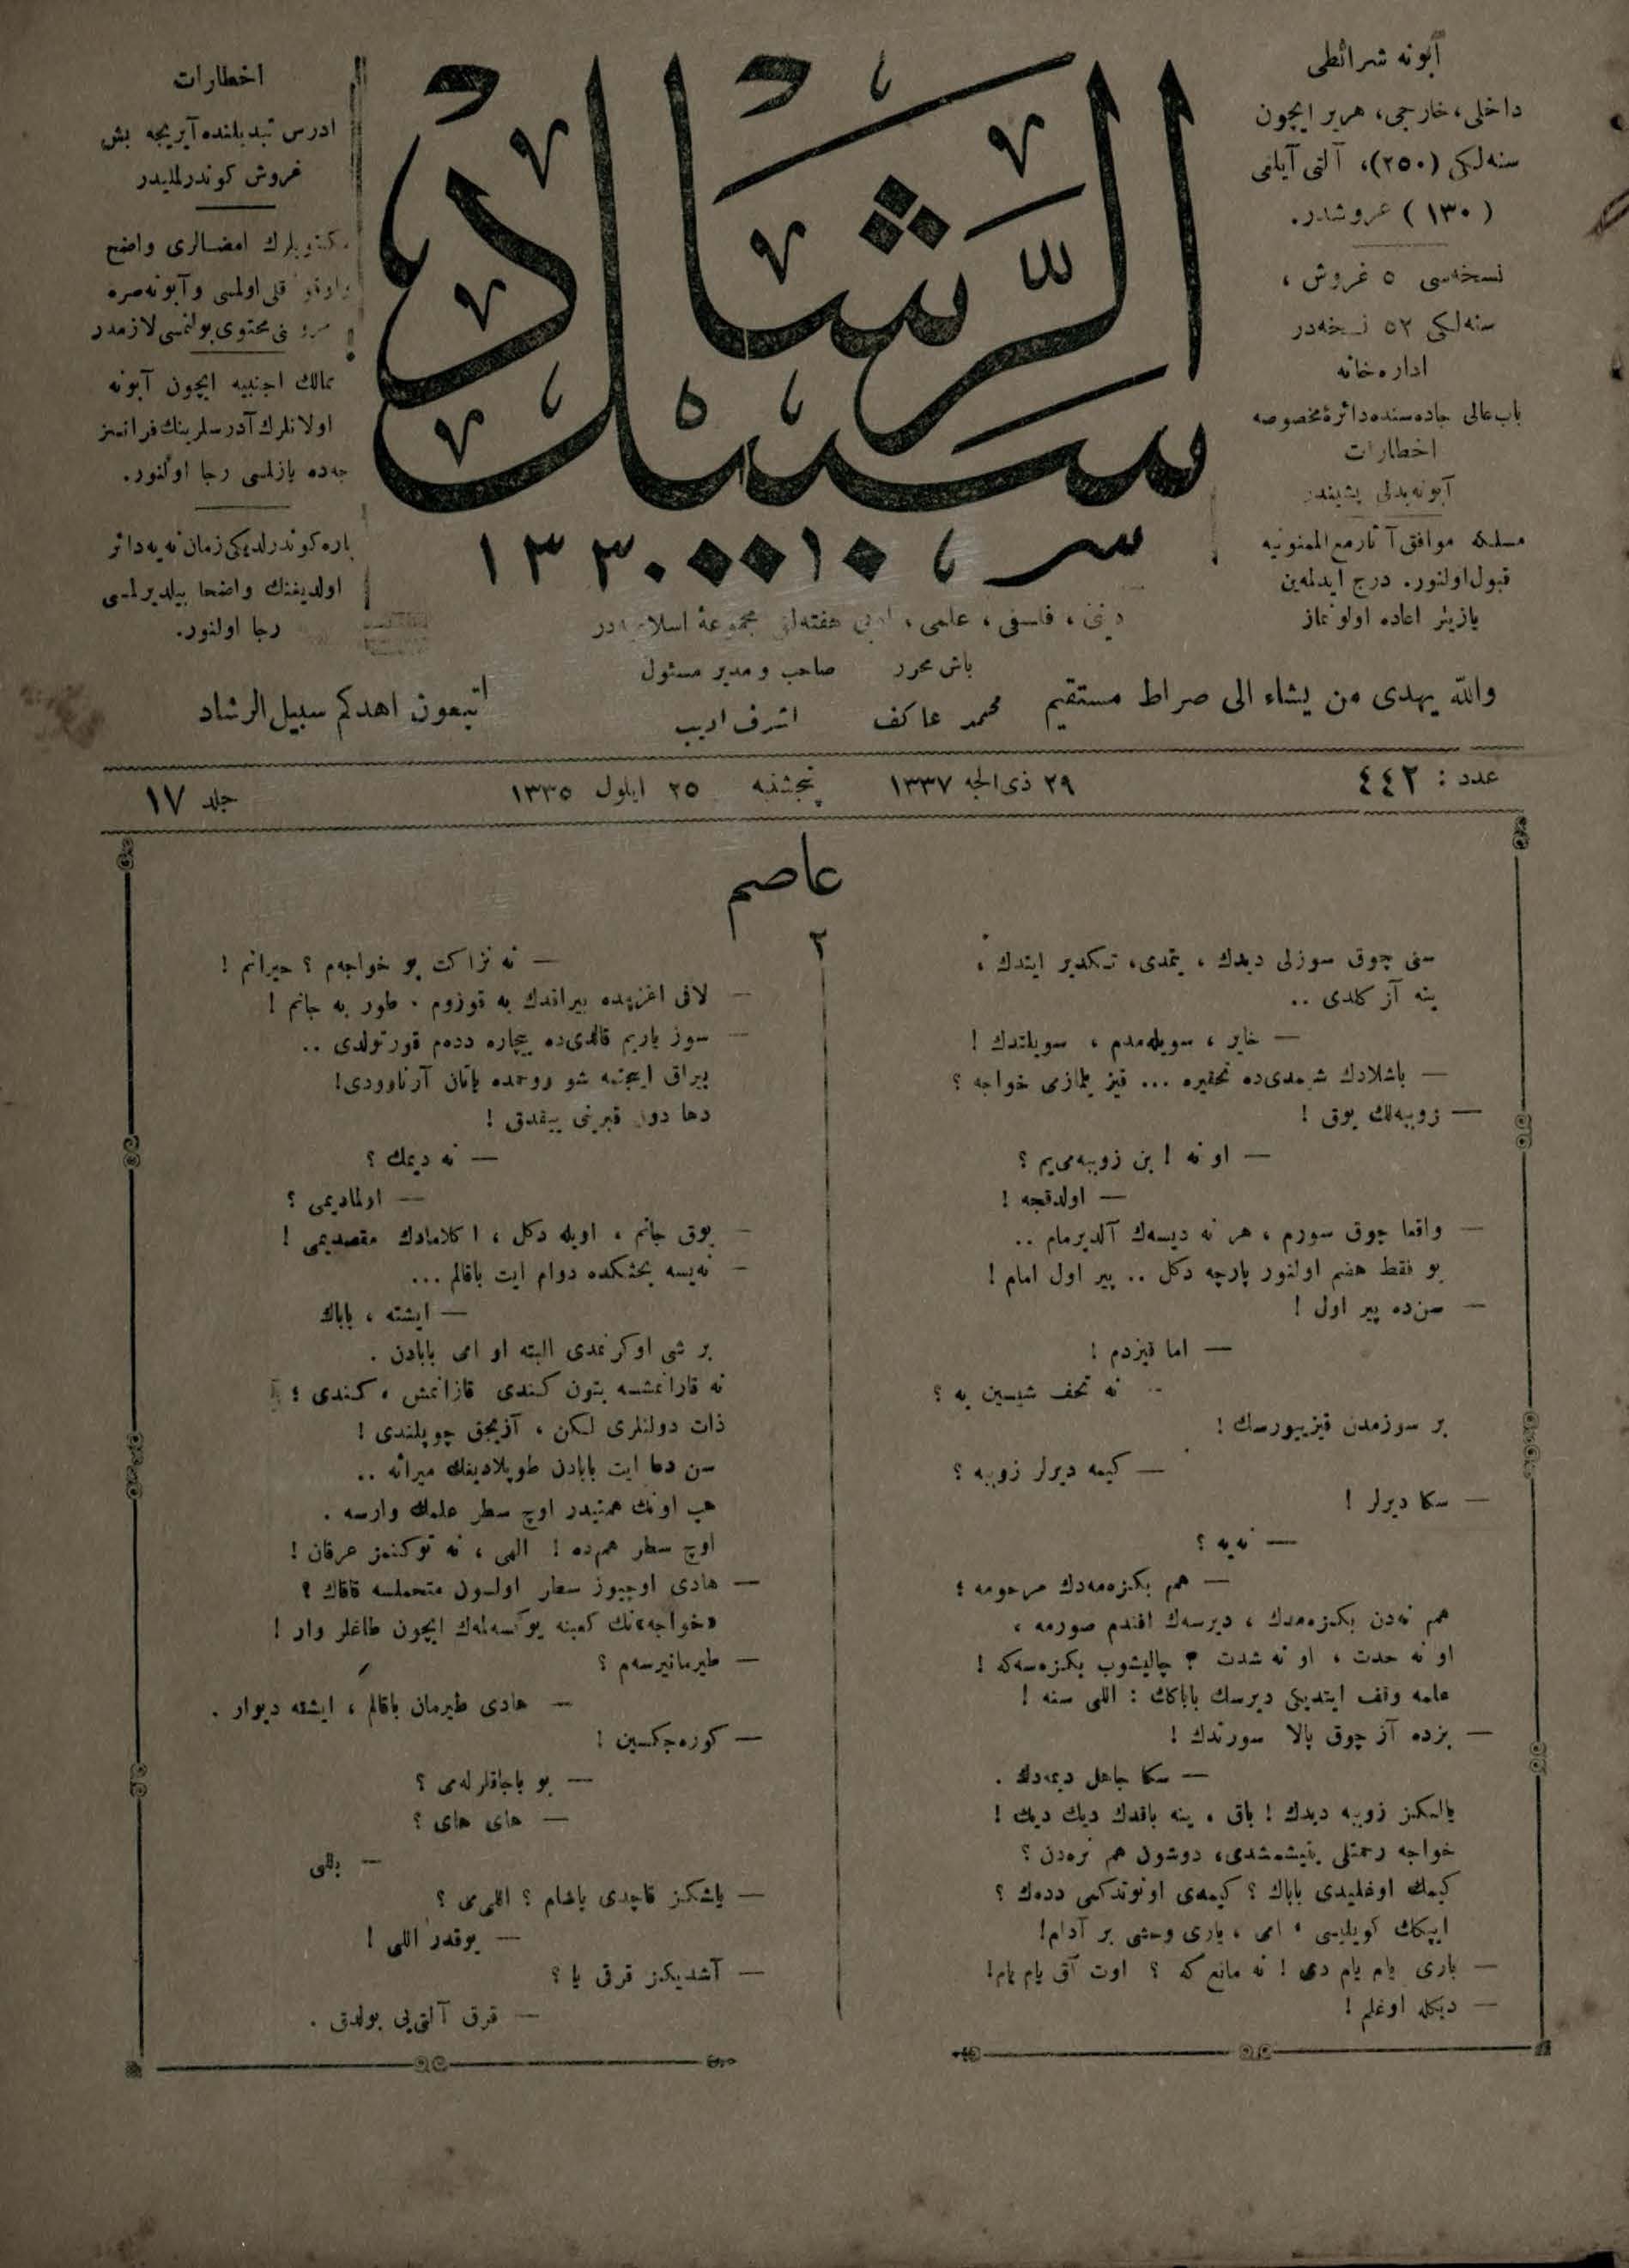 آبونه شرائطی
داخلی، خارجی، هریر ایچون
سنه‌لکی (٢٥٠)، آلتی آیلغی
(١٣٠) غروشدر.
نسخه‌سی ٥ غروش،
سنه‌لکی ٥٢ نسخه‌در
اداره‌خانه
باب عالی جاده‌سنده دائرهٔ مخصوصه
اخطارات
آبونه بدلی پشیندر
مسلکه موافق آثار مع الممنونیه
قبول اولنور. درج ایدلمه‌ین
یازیلر اعاده اولونماز
سبیل الرشاد
١٣٣٠
دینی، فلسفی، علمی، ادبی هفته‌لق مجموعهٔ اسلامیه‌در
باش محرر
محمد عاکف
صاحب و مدیر مسئول
اشرف ادیب
اخطارات
ادرس تبدیلنده آیریجه بش
غروش کوندرلملیدر
مکتوبلرك امضالری واضح
اولمسی و آبونه صره
محتوی بولنمسی لازمدر
ممالك اجنبیه ایچون آبونه
اولانلرك آدرسلرینك فرانسز
جه‌ده یازلمسی رجا اولنور.
پاره کوندرلدیکی زمان نه‌یه دائر
اولدیغنك واضحا بیلدیرلمسی
رجا اولنور.
والله یهدی من یشاء الی صراط مستقیم
اتبعون اهدکم سبیل الرشاد
عدد : ٤٤٢
٢٩ ذی الحجه ١٣٣٧ پنجشنبه ٢٥ ایلول ١٣٣٥
جلد ١٧
عاصم
٢
سنی چوق سوزلی دیدك، یتمدی، تکدیر ایتدك،
ینه آز کلدی ..
— خایر، سویله‌مدم، سویلتدك !
— باشلادك شیمدی‌ده تحقیره ... قیز یلمازمی خواجه ؟
— زوبه‌لك یوق !
— او نه ! بن زوبه‌می‌یم ؟
— اولدقجه !
— واقعا چوق سورم، هر نه دیسه‌ك آلدیرمام ..
بو فقط هضم اولنور پارچه دکل .. پیر اول امام !
— سن‌ده پیر اول !
— اما قیزدم !
— نه تحف شیسین به ؟
بر سوزمدن قیزییورسك !
— کیمه دیرلر زوبه ؟
— سکا دیرلر !
— نه‌یه ؟
— هم بکزه‌مه‌دك مرحومه ؛
هم نه‌دن بکزه‌مه‌دك، دیرسه‌ك افندم صورمه،
او نه حدت، او نه شدت ؟ چالیشوب بکزه‌سه‌که !
علمه وقف ایتدیکی دیرسك باباکك : اللی سنه !
— بزده آز چوق پالا سورتدك !
— سکا جاهل دیمه‌دك .
یالیکز زوبه دیدك ! باق، ینه باقدك دیك دیك !
خواجه رحمتلی یتیشمشدی، دوشون هم نره‌دن ؟
کیمك اوغلیدی باباك ؟ کیمه‌ی اونوتدکمی دده‌ك ؟
ایپکك کویلیسی، امی، یاری وحشی بر آدام!
— باری یام یام دی ! نه مانع که ؟ اوت آق یام یام!
— دیکله اوغلم !
— نه نزاکت بو خواجه‌م ؟ حیرانم !
— لافی اغزیمده بیراقدك به قوزوم . طور به جانم !
— سوز یاریم قالدی‌ده بیچاره دده‌م قورتولدی ..
بیراق ایجنبه شو روحمده یاتان آرناوودی!
دها دون قبرینی ییقدق !
— نه دیمك ؟
— اولمادیمی ؟
— یوق جانم، اویله دکل، اکلامادك مقصدیمی !
— نه‌یسه بحثکده دوام ایت باقالم ...
— ایشته، باباك
بر شی اوکرنمدی البته او امی بابادن .
نه قازانمشسه بتون کندی قازانمش، کندی ؛
ذات دولتلری لکن، آزیجق چوپلندی !
سن دها ایت بابادن طوپلادیغك میراثه ..
هب اونك همتیدر اوچ سطر علمك وارسه .
اوچ سطر هم‌ده ! الهی، نه توکنمز عرفان !
— هادی اوچیوز سطر اولسون متحملسه قافاك ؟
«خواجه»نك کعبنه یوکسه‌لمه‌ك ایچون طاغلر وار !
— طیرمانیرسه‌م ؟
— هادی طیرمان باقالم، ایشته دیوار .
— کوره‌جکسین !
— بو باجاقلرله‌می ؟
— های های ؟
— بللی
— یاشکز قاچدی پاشام ؟ اللی‌می ؟
— یوقدر اللی !
— آشدیکز قرقی یا ؟
— قرق آلتی‌یی بولدق .